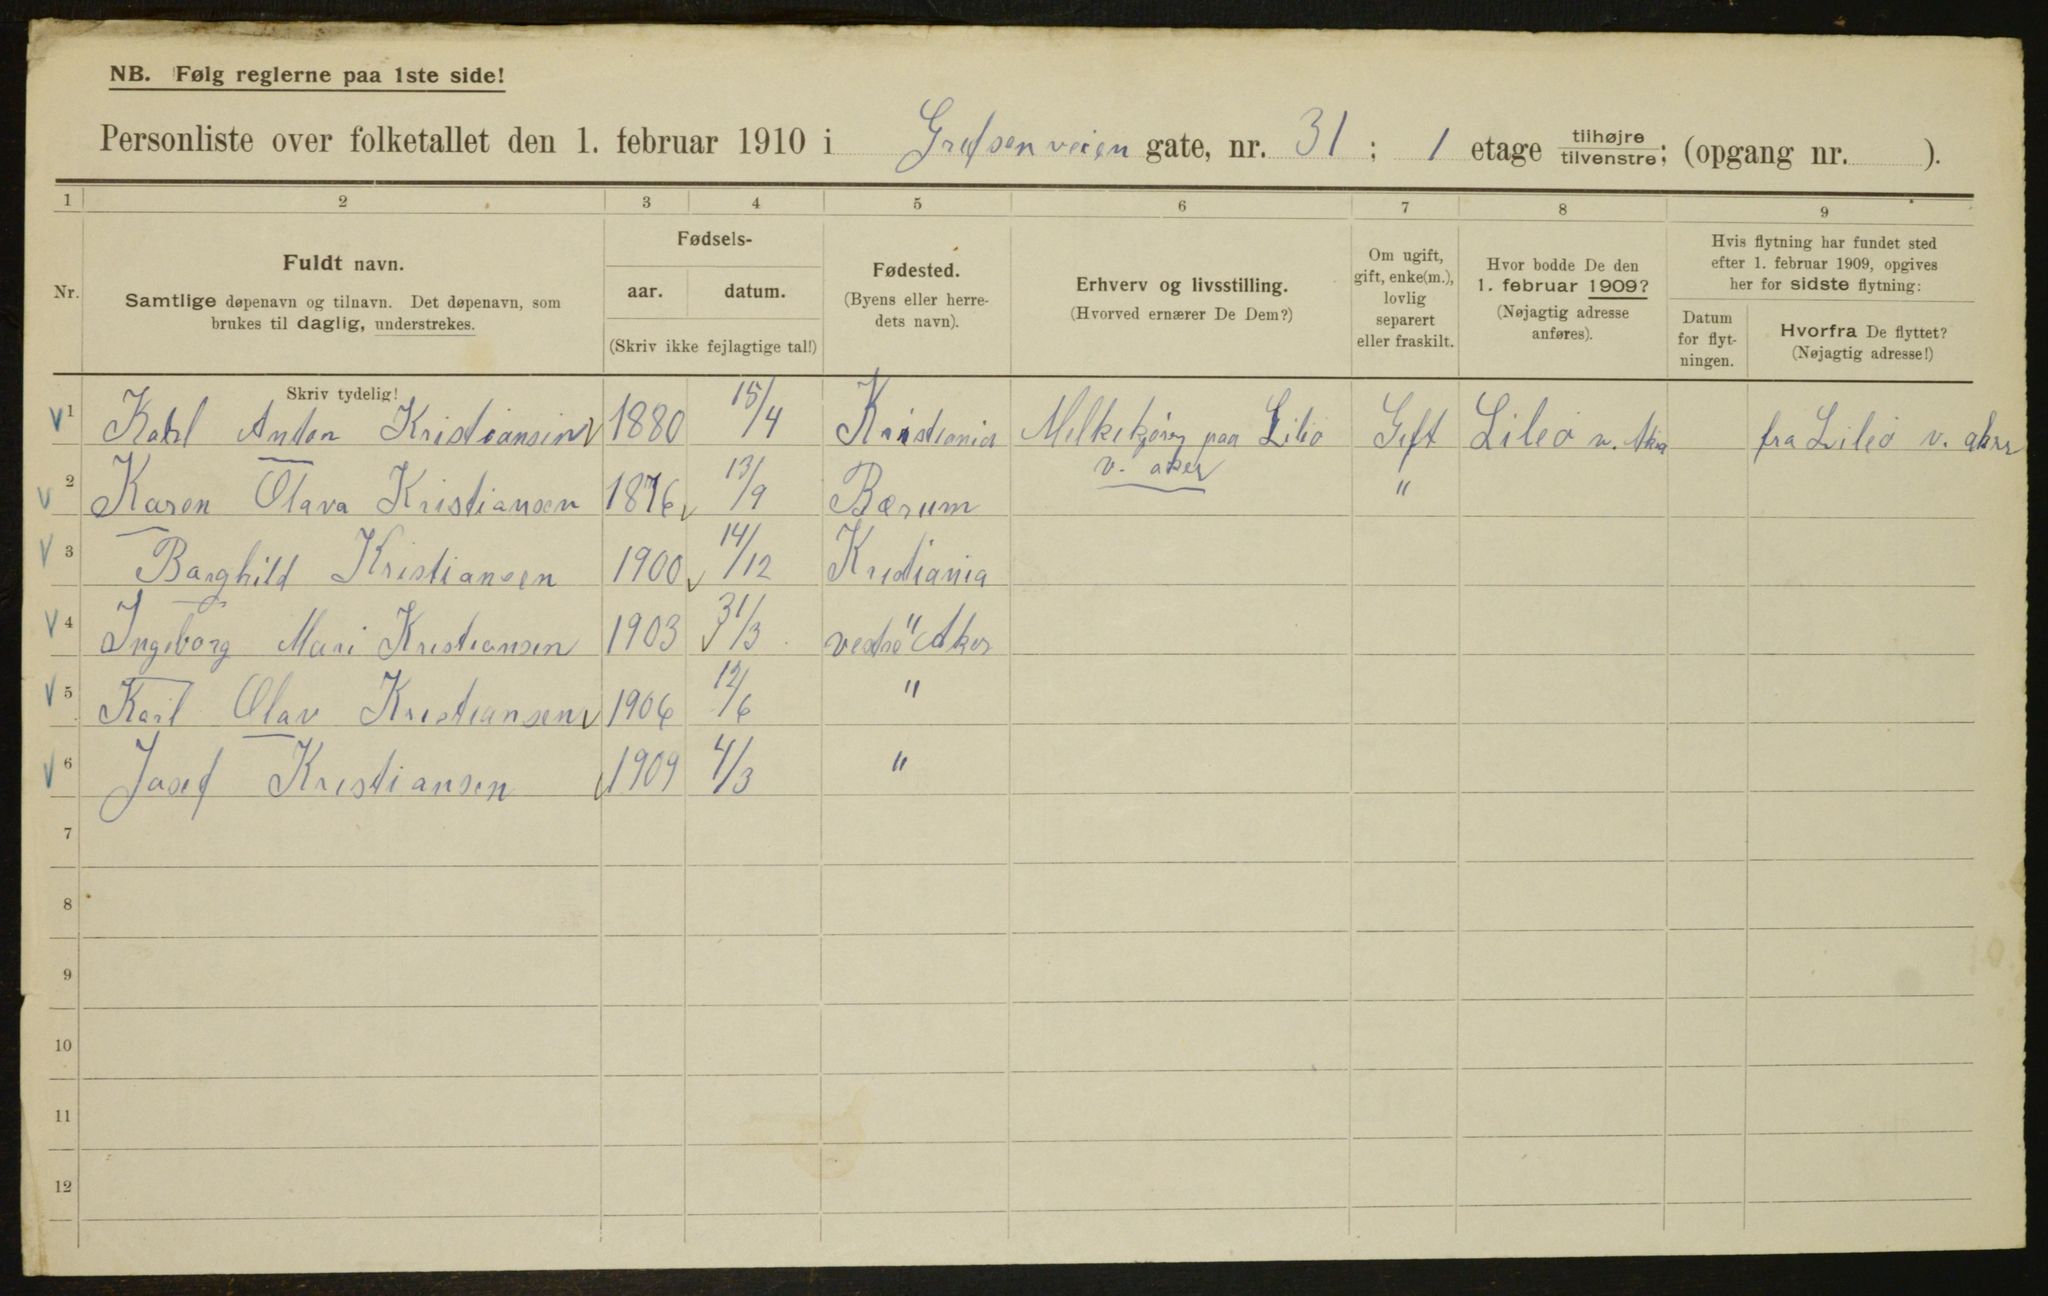 NB. Følg reglerne paa 1ste side!
Personliste over folketallet den 1. februar 1910 i Grefsenveien gate, nr. 31 ; 1 etage tilhøjre tilvenstre; (opgang nr. ).
1 2 3 4 5 6 7 8 9
Nr.
Fuldt navn.
Samtlige døpenavn og tilnavn. Det døpenavn, som
brukes til daglig, understrekes.
Skriv tydelig!
Fødsels-
aar. datum.
(Skriv ikke fejlagtige tal!)
Fødested.
(Byens eller herre-
dets navn).
Erhverv og livsstilling.
(Hvorved ernærer De Dem?)
Om ugift,
gift, enke(m.),
lovlig
separert
eller fraskilt.
Hvor bodde De den
1. februar 1909?
(Nøjagtig adresse
anføres).
Hvis flytning har fundet sted
efter 1. februar 1909, opgives
her for sidste flytning:
Datum
for flyt-
ningen.
Hvorfra De flyttet?
(Nøjagtig adresse!)
1 Karl Anton Kristiansen 1880 15/4 Kristiania Melkekjører paa Lilio Gift Lileo v. Aker fra Lileo v. aker
v. aker
2 Karen Olava Kristiansen 1876 13/9 Bærum "
3 Barghild Kristiansen 1900 14/12 Kristiania
4 Ingeborg Mari Kristiansen 1903 31/3 vestre Aker
5 Karl Olav Kristiansen 1906 12/6 "
6 Josef Kristiansen 1909 4/3 "
7
8
9
10
11
12